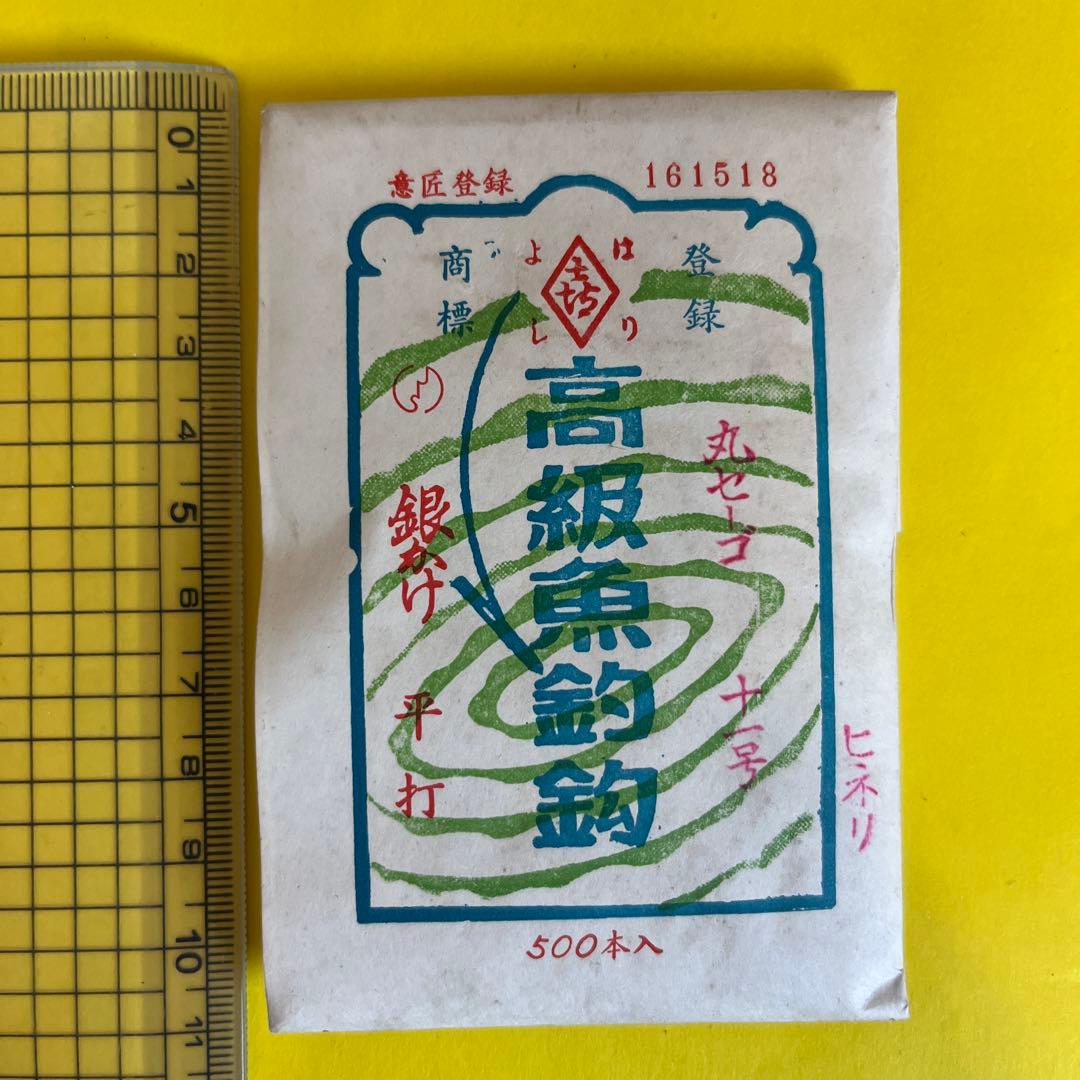 意匠登録 161518
登録
商標
はり
よし
高級魚釣鈎
丸セーゴ
十一号
ヒネリ
銀かけ
平打
500本入
0
1
2
3
4
5
6
7
8
9
10
11